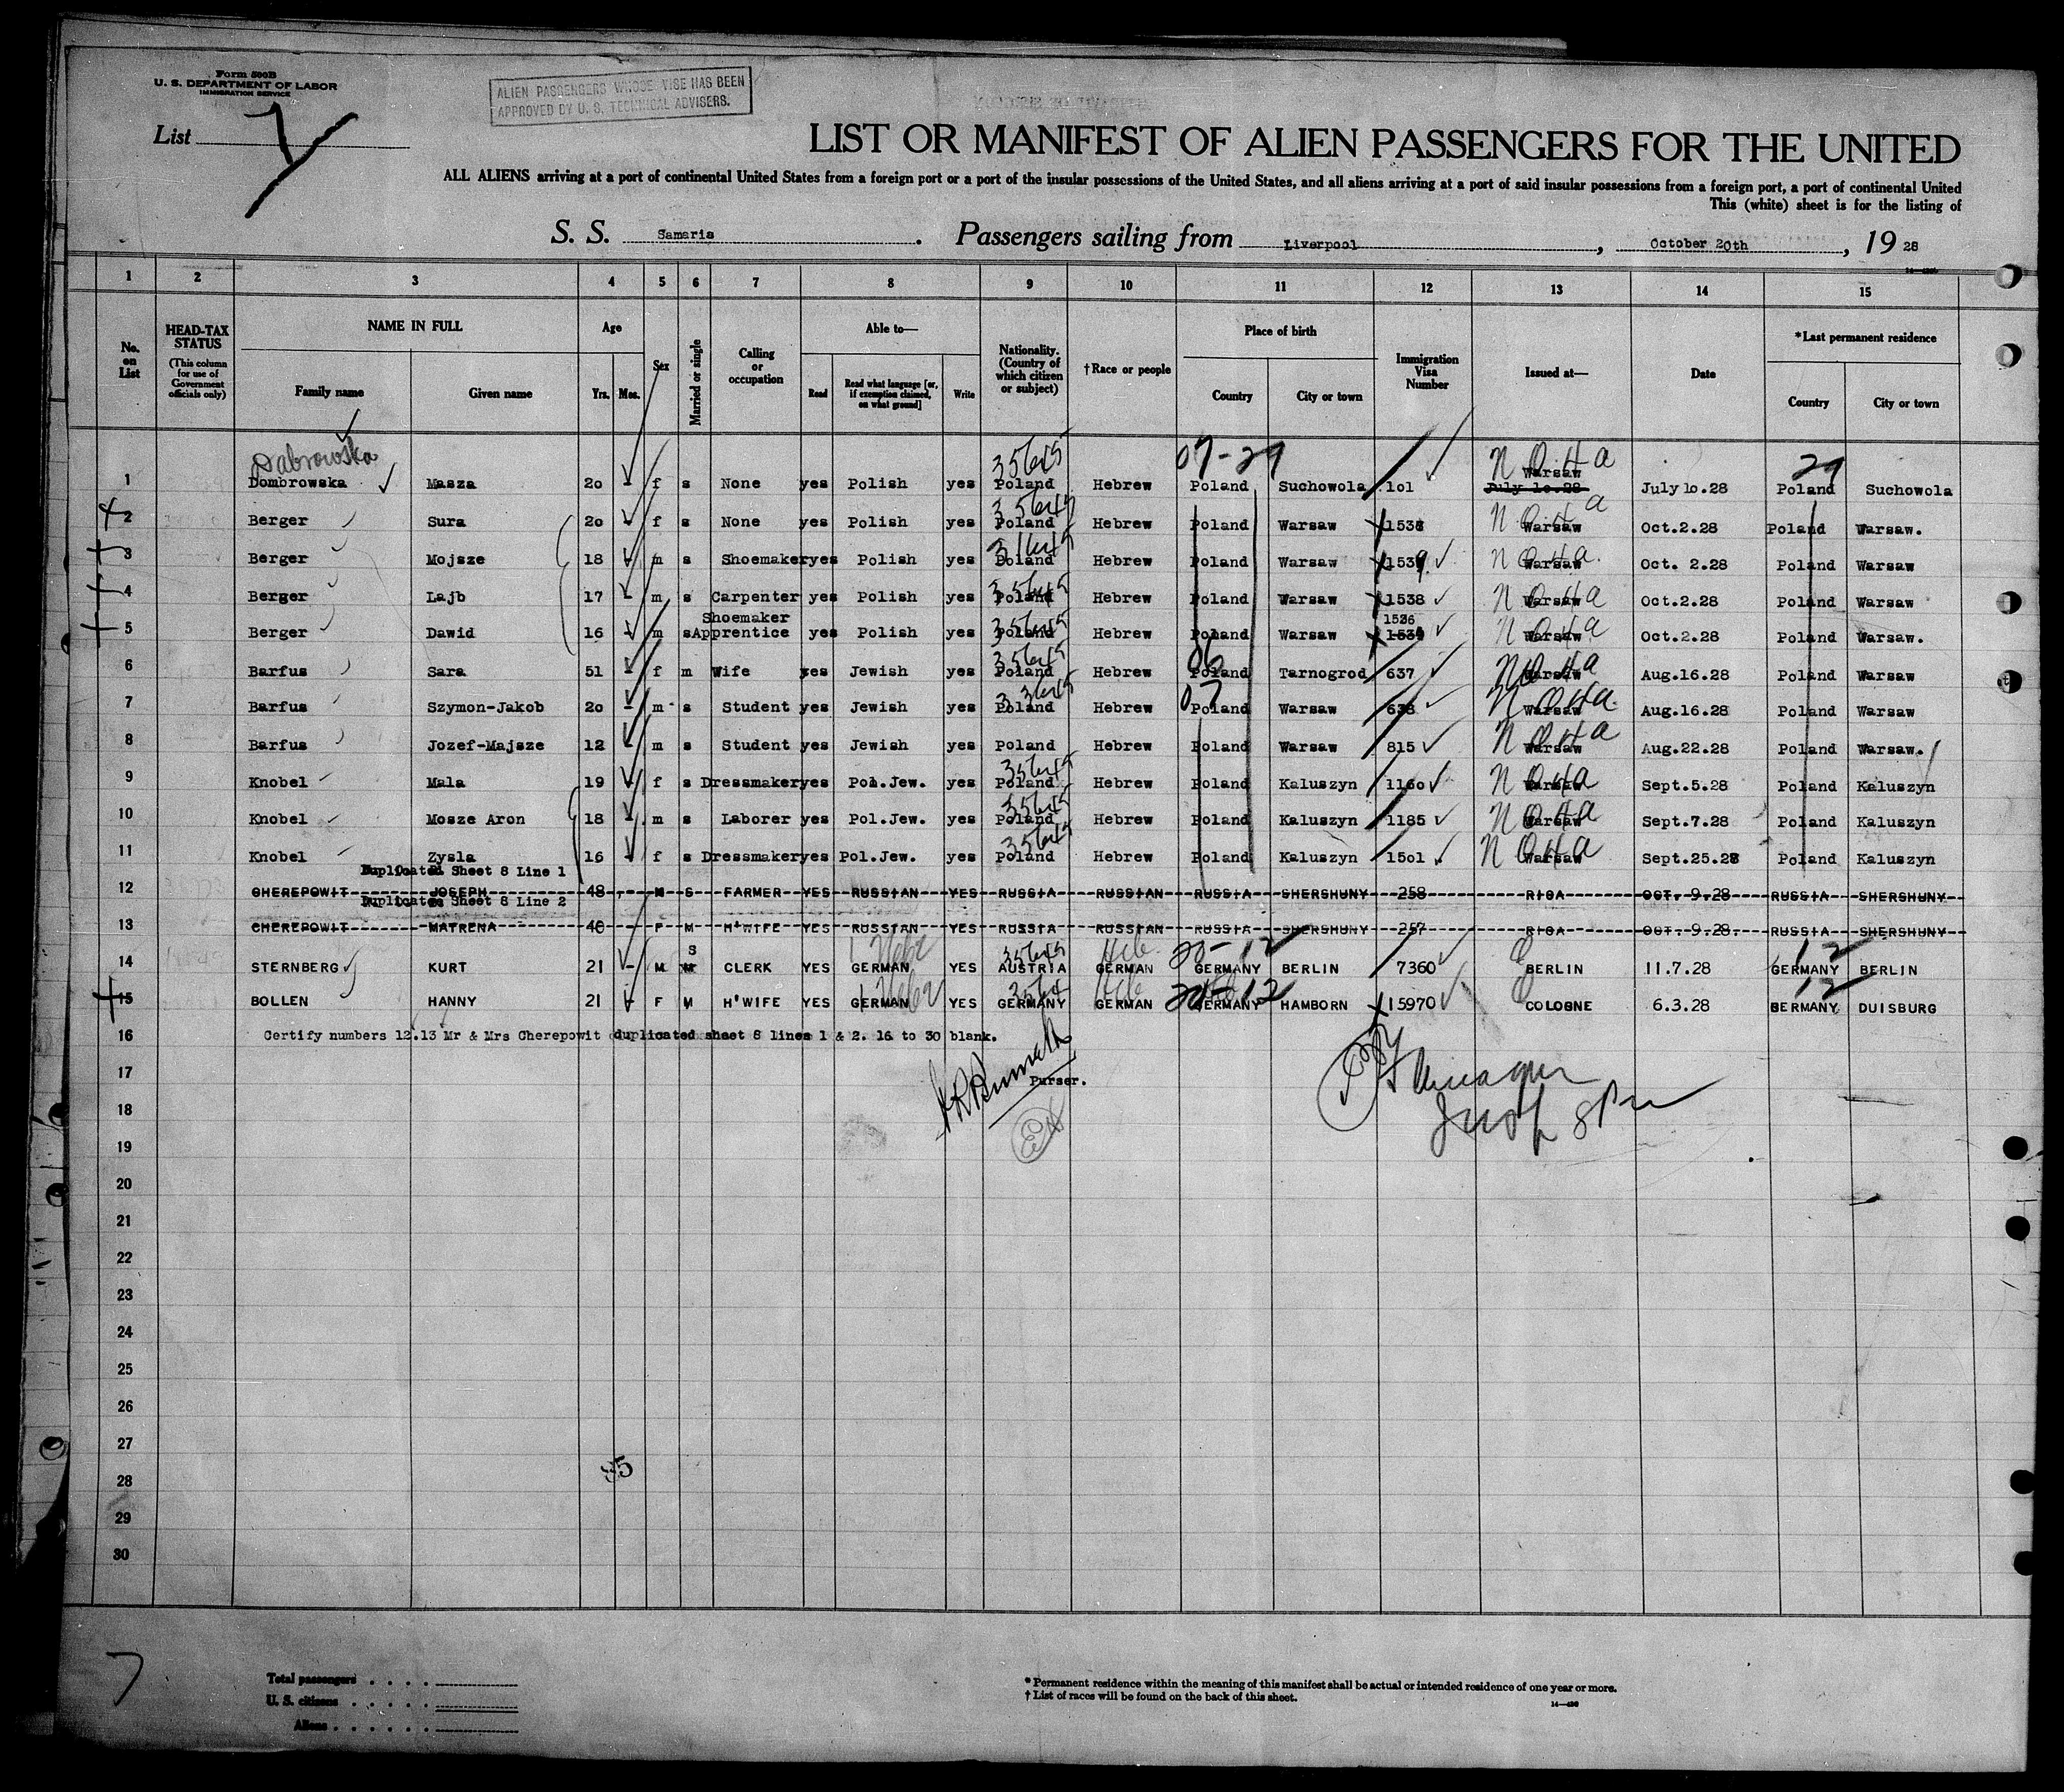 Form 500B
U. S. DEPARTMENT OF LABOR
IMMIGRATION SERVICE
ALIEN PASSENGERS WHOSE VISE HAS BEEN
APPROVED BY U. S. TECHNICAL ADVISERS.
List 7
LIST OR MANIFEST OF ALIEN PASSENGERS FOR THE UNITED
ALL ALIENS arriving at a port of continental United States from a foreign port or a port of the insular possessions of the United States, and all aliens arriving at a port of said insular possessions from a foreign port, a port of continental United
This (white) sheet is for the listing of
S. S. Samaria. Passengers sailing from Liverpool, October 20th, 19 28
1 2 3 4 5 6 7 8 9 10 11 12 13 14 15
No. on List
HEAD-TAX STATUS
(This column for use of Government officials only)
NAME IN FULL
Family name Given name
Age
Yrs. Mos.
Sex
Married or single
Calling or occupation
Able to—
Read Read what language [or, if exemption claimed, on what ground] Write
Nationality. (Country of which citizen or subject)
†Race or people
Place of birth
Country City or town
Immigration Visa Number
Issued at—
Date
*Last permanent residence
Country City or town
Dabrowska 35645 07-29 29
1 Dombrowska Masza 20 - f s None yes Polish yes Poland Hebrew Poland Suchowola 101 Warsaw July 10.28 July 10.28 Poland Suchowola
2 Berger Sura 20 - f s None yes Polish yes Poland Hebrew Poland Warsaw 1538 Warsaw Oct.2.28 Poland Warsaw.
3 Berger Mojsze 18 - m s Shoemaker yes Polish yes Poland Hebrew Poland Warsaw 1539 Warsaw Oct. 2.28 Poland Warsaw
4 Berger Lajb 17 - m s Carpenter yes Polish yes Poland Hebrew Poland Warsaw 1538 Warsaw Oct.2.28 Poland Warsaw
Shoemaker 1536
5 Berger Dawid 16 - m s Apprentice yes Polish yes Poland Hebrew Poland Warsaw Warsaw Oct.2.28 Poland Warsaw.
6 Barfus Sara 51 - f m Wife yes Jewish yes Poland Hebrew Poland Tarnogrod 637 Warsaw Aug.16.28 Poland Warsaw
7 Barfus Szymon-Jakob 20 - m s Student yes Jewish yes Poland Hebrew Poland Warsaw 638 Warsaw Aug.16.28 Poland Warsaw
8 Barfus Jozef-Majsze 12 - m s Student yes Jewish yes Poland Hebrew Poland Warsaw 815 Warsaw Aug.22.28 Poland Warsaw.
9 Knobel Mala 19 - f s Dressmaker yes Pol.Jew. yes Poland Hebrew Poland Kaluszyn 1160 Warsaw Sept.5.28 Poland Kaluszyn
10 Knobel Mosze Aron 18 - m s Laborer yes Pol.Jew. yes Poland Hebrew Poland Kaluszyn 1185 Warsaw Sept.7.28 Poland Kaluszyn
11 Knobel Zysla 16 - f s Dressmaker yes Pol.Jew. yes Poland Hebrew Poland Kaluszyn 1501 Warsaw Sept.25.28 Poland Kaluszyn
Duplicated Sheet 8 Line 1
12 CHEREPOWIT JOSEPH 48 - M S FARMER YES RUSSIAN YES RUSSIA RUSSIAN RUSSIA SHERSHUNY 258 RIGA OCT. 9.28 RUSSIA SHERSHUNY
Duplicated Sheet 8 Line 2
13 CHEREPOWIT MATRENA 40 F M H'WIFE YES RUSSIAN YES RUSSIA RUSSIAN RUSSIA SHERSHUNY 257 RIGA OCT. 9.28. RUSSIA SHERSHUNY
S 35645 Heb. 12
14 STERNBERG KURT 21 - M M CLERK YES GERMAN YES AUSTRIA GERMAN GERMANY BERLIN 7360 BERLIN 11.7.28 GERMANY BERLIN
15 BOLLEN HANNY 21 - F M H'WIFE YES GERMAN YES GERMANY GERMAN GERMANY HAMBORN 15970 COLOGNE 6.3.28 GERMANY DUISBURG
16 Certify numbers 12.13 Mr & Mrs Cherepowit duplicated sheet 8 lines 1 & 2. 16 to 30 blank.
17 Purser.
18
19
20
21
22
23
24
25
26
27
28
29
30
7
Total passengers
U. S. citizens
Aliens
* Permanent residence within the meaning of this manifest shall be actual or intended residence of one year or more.
† List of races will be found on the back of this sheet.